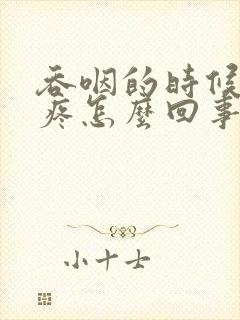 吞咽的時候
疼怎麼回事
小十士